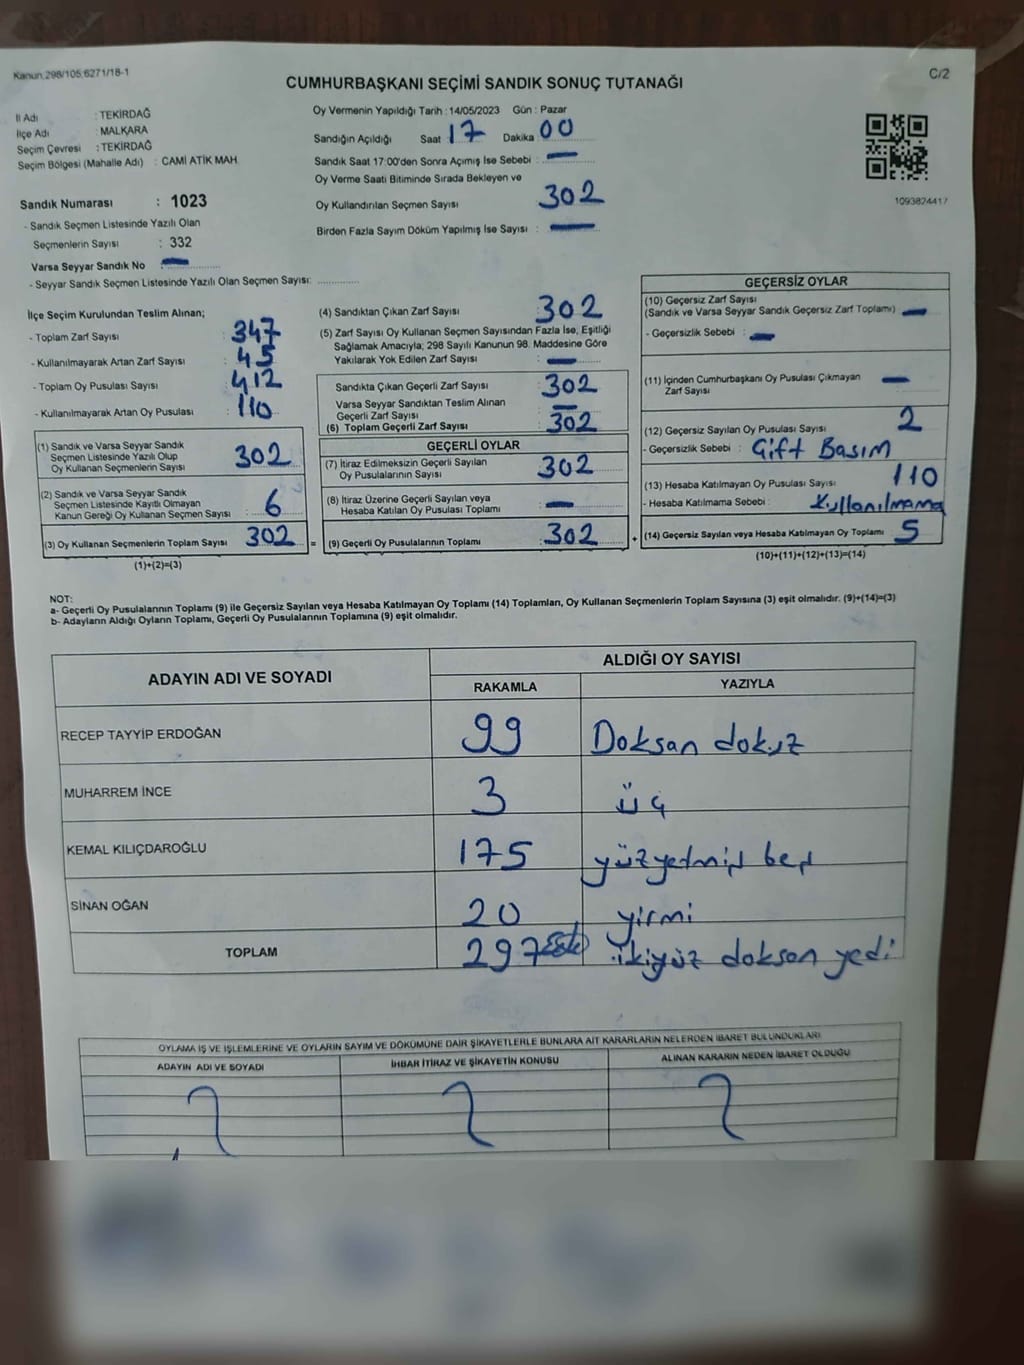 Kanun:298/105;6271/18-1
C/2
CUMHURBAŞKANI SEÇİMİ SANDIK SONUÇ TUTANAĞI
İl Adı : TEKİRDAĞ
İlçe Adı : MALKARA
Seçim Çevresi : TEKİRDAĞ
Seçim Bölgesi (Mahalle Adı) : CAMİ ATİK MAH.
Oy Vermenin Yapıldığı Tarih : 14/05/2023 Gün : Pazar
Sandığın Açıldığı Saat 17 Dakika 00
Sandık Saat 17:00'den Sonra Açımış İse Sebebi : —
Oy Verme Saati Bitiminde Sırada Bekleyen ve
Oy Kullandırılan Seçmen Sayısı 302
Birden Fazla Sayım Döküm Yapılmış İse Sayısı : —
1093824417
Sandık Numarası : 1023
- Sandık Seçmen Listesinde Yazılı Olan
Seçmenlerin Sayısı : 332
Varsa Seyyar Sandık No —
- Seyyar Sandık Seçmen Listesinde Yazılı Olan Seçmen Sayısı:
İlçe Seçim Kurulundan Teslim Alınan;
- Toplam Zarf Sayısı : 347
- Kullanılmayarak Artan Zarf Sayısı : 45
- Toplam Oy Pusulası Sayısı : 412
- Kullanılmayarak Artan Oy Pusulası : 110
(1) Sandık ve Varsa Seyyar Sandık
Seçmen Listesinde Yazılı Olup
Oy Kullanan Seçmenlerin Sayısı 302
(2) Sandık ve Varsa Seyyar Sandık
Seçmen Listesinde Kayıtlı Olmayan
Kanun Gereği Oy Kullanan Seçmen Sayısı : 6
(3) Oy Kullanan Seçmenlerin Toplam Sayısı 302 =
(1)+(2)=(3)
(4) Sandıktan Çıkan Zarf Sayısı : 302
(5) Zarf Sayısı Oy Kullanan Seçmen Sayısından Fazla İse, Eşitliği
Sağlamak Amacıyla; 298 Sayılı Kanunun 98. Maddesine Göre
Yakılarak Yok Edilen Zarf Sayısı : —
Sandıkta Çıkan Geçerli Zarf Sayısı : 302
Varsa Seyyar Sandıktan Teslim Alınan
Geçerli Zarf Sayısı : —
(6) Toplam Geçerli Zarf Sayısı : 302
GEÇERLİ OYLAR
(7) İtiraz Edilmeksizin Geçerli Sayılan
Oy Pusulalarının Sayısı : 302
(8) İtiraz Üzerine Geçerli Sayılan veya
Hesaba Katılan Oy Pusulası Toplamı : —
(9) Geçerli Oy Pusulalarının Toplamı : 302 +
GEÇERSİZ OYLAR
(10) Geçersiz Zarf Sayısı
(Sandık ve Varsa Seyyar Sandık Geçersiz Zarf Toplamı) —
- Geçersizlik Sebebi : —
(11) İçinden Cumhurbaşkanı Oy Pusulası Çıkmayan
Zarf Sayısı —
(12) Geçersiz Sayılan Oy Pusulası Sayısı : 2
- Geçersizlik Sebebi : Çift Basım
(13) Hesaba Katılmayan Oy Pusulası Sayısı : 110
- Hesaba Katılmama Sebebi : Kullanılmama
(14) Geçersiz Sayılan veya Hesaba Katılmayan Oy Toplamı 5
(10)+(11)+(12)+(13)=(14)
NOT:
a- Geçerli Oy Pusulalarının Toplamı (9) ile Geçersiz Sayılan veya Hesaba Katılmayan Oy Toplamı (14) Toplamları, Oy Kullanan Seçmenlerin Toplam Sayısına (3) eşit olmalıdır. (9)+(14)=(3)
b- Adayların Aldığı Oyların Toplamı, Geçerli Oy Pusulalarının Toplamına (9) eşit olmalıdır.
ADAYIN ADI VE SOYADI
ALDIĞI OY SAYISI
RAKAMLA YAZIYLA
RECEP TAYYİP ERDOĞAN 99 Doksan dokuz
MUHARREM İNCE 3 üç
KEMAL KILIÇDAROĞLU 175 yüzyetmiş beş
SİNAN OĞAN 20 yirmi
TOPLAM 297 ikiyüz doksan yedi
OYLAMA İŞ VE İŞLEMLERİNE VE OYLARIN SAYIM VE DÖKÜMÜNE DAİR ŞİKAYETLERLE BUNLARA AİT KARARLARIN NELERDEN İBARET BULUNDUKLARI
ADAYIN ADI VE SOYADI
İHBAR İTİRAZ VE ŞİKAYETİN KONUSU
ALINAN KARARIN NEDEN İBARET OLDUĞU